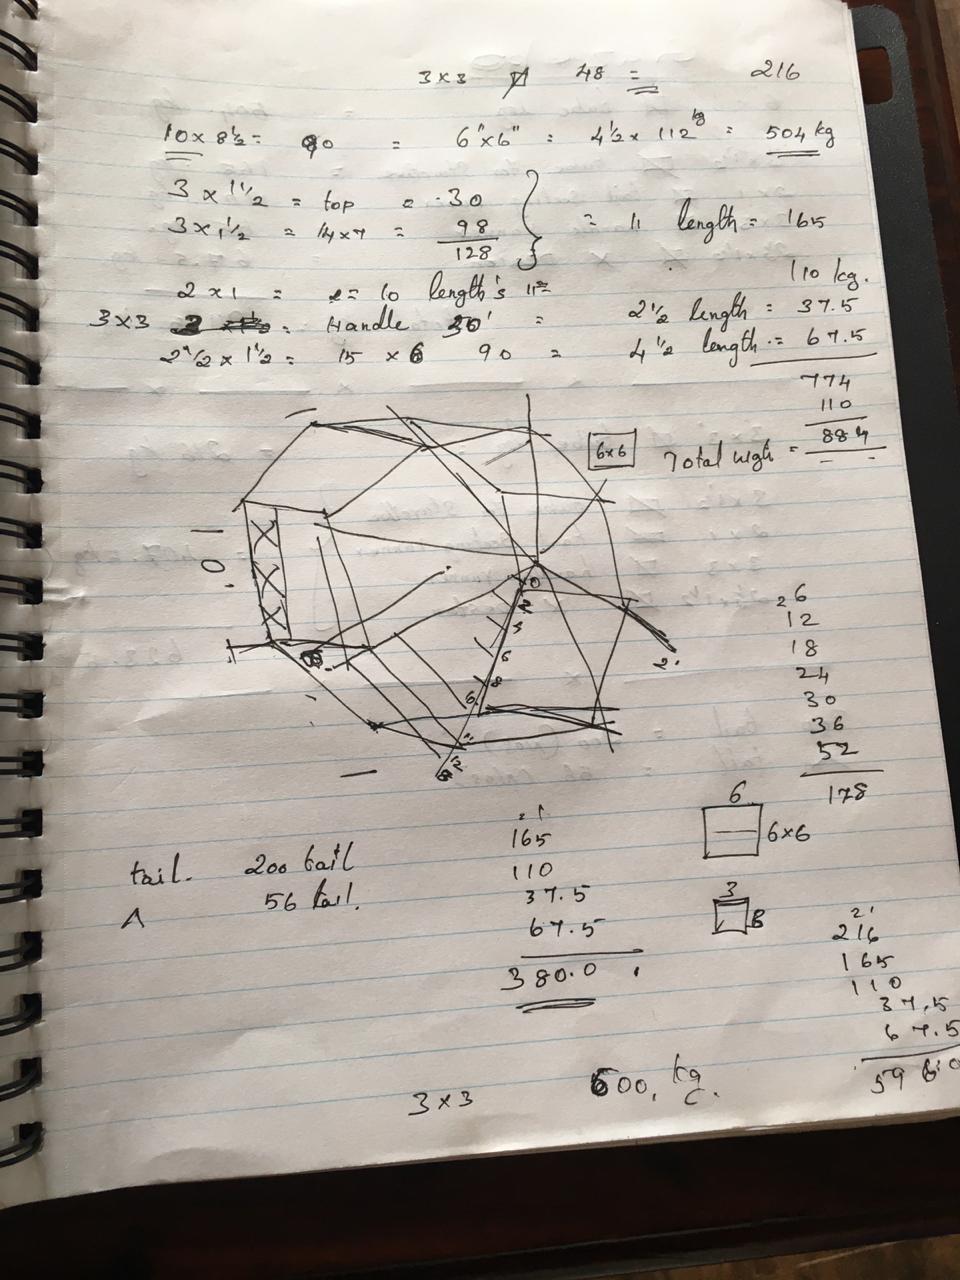 3×3 48 = 216
10 × 8½ = 90 = 6"×6" = 4½ × 112 kg = 504 kg
3 × 1½ = top = 30
3 × 1½ = 14×7 = 98
128
= 11 length = 165
110 kg.
2 × 1 = 2 = 10 length's 11=
3×3 = Handle 30' = 2½ length = 37.5
2½ × 1½ = 15 × 6 90 = 4½ length = 67.5
774
110
Total = 884
6×6
10'
0
2
4
6
8
2'
6
12
18
24
30
36
52
178
6
6×6
3
tail. 200 tail
A 56 tail.
165
110
37.5
67.5
380.0
216
165
110
37.5
67.5
3×3 600, kg